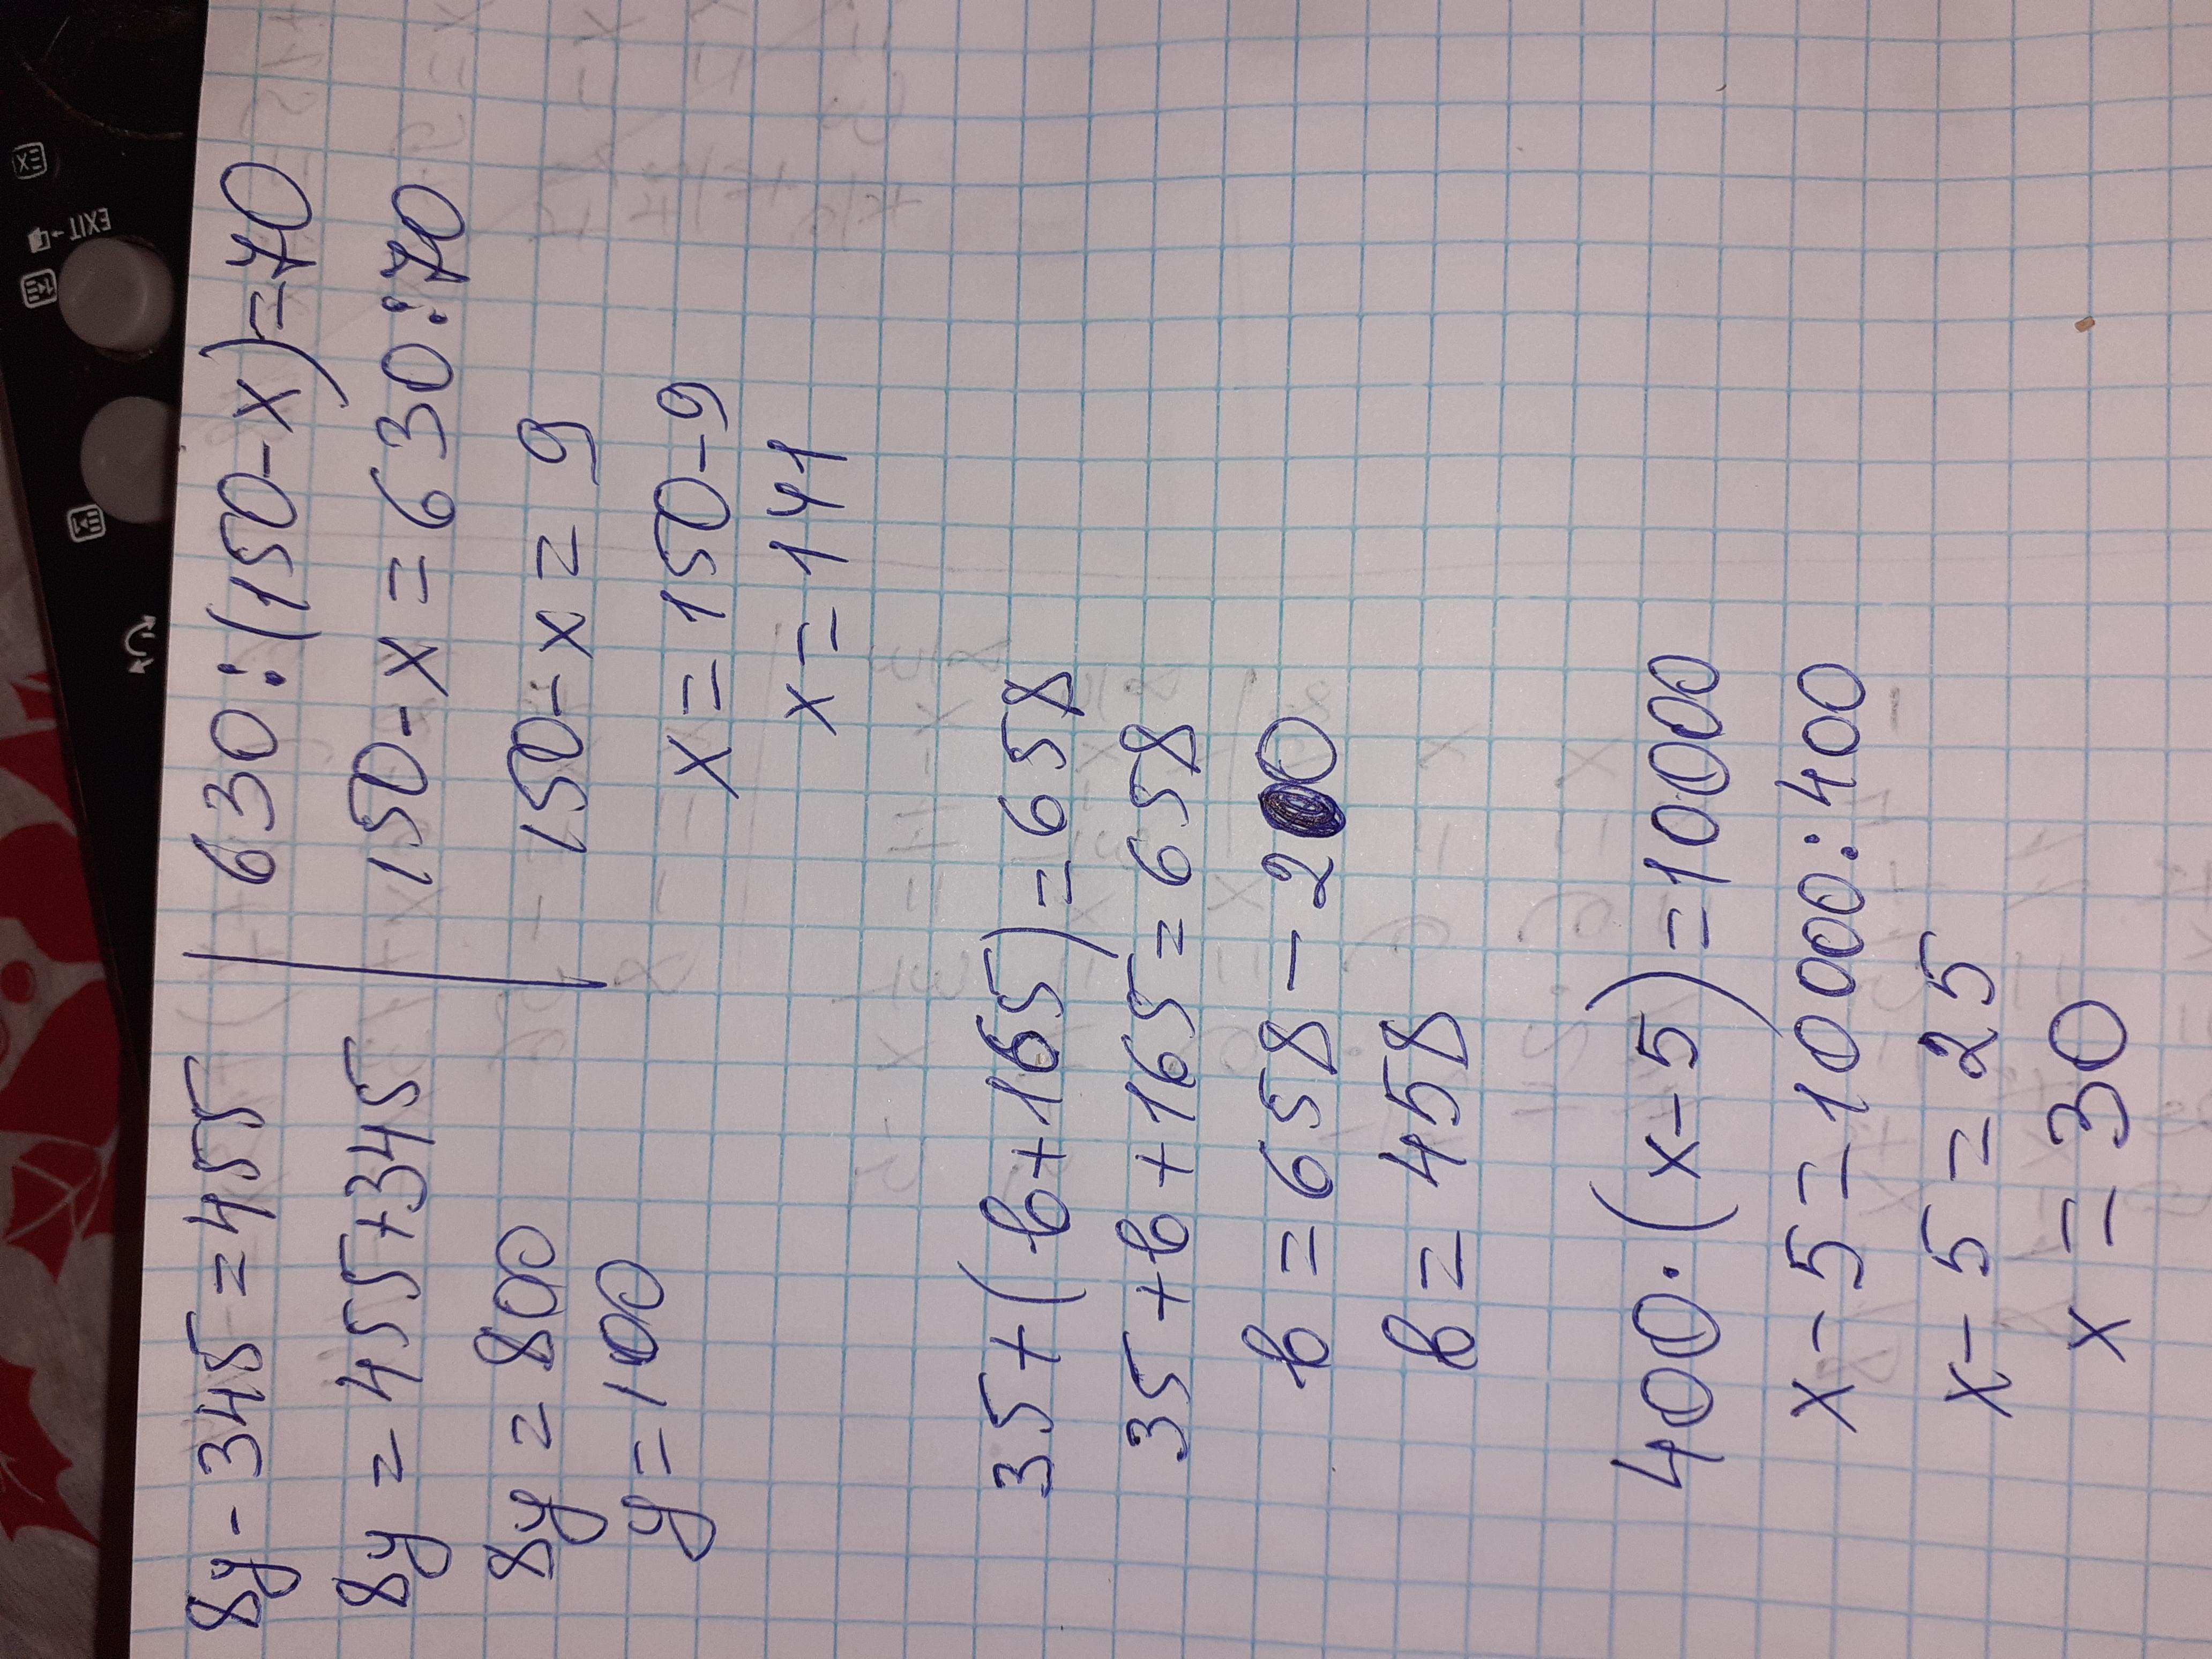 8y - 345 = 455
8y = 455 + 345
8y = 800
y = 100
630 : (150 - x) = 70
150 - x = 630 : 70
150 - x = 9
x = 150 - 9
x = 141
35 + (b + 165) = 658
35 + b + 165 = 658
b = 658 - 200
b = 458
400 · (x - 5) = 10000
x - 5 = 10000 : 400
x - 5 = 25
x = 30
EXIT
EX